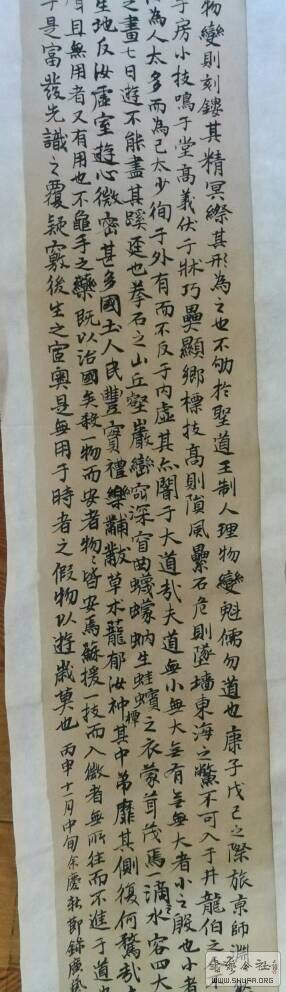 物變則刻鏤其精冥縩其形為之也不劬於聖道王制人理物變魁儒勿道也康子戊己之際旅京師淵
子房小技鳴于堂高義伏于牀巧異顯鄉標技高則隕風纍石危則墜墻東海之鱉不可入于井龍伯之
為人太多而為己太少徇于外有而不反于内虛其亦闇于大道哉夫道無小無大無有無無大者小之殷也小者
之畫七日遊不能盡其蹊逕也拳石之山丘壑巖巒窅深窅曲蠛蠓蚋生蛙蠙之衣蒙茸茂焉一滴水容四大
生地反汝虛室遊心微密甚多國土人民豐實禮樂黼黻草木蘢郁汝神禪其中弟靡其側復何騖哉
且無用者又有用也不龜手之藥既以治國矣殺一物而安者物〻皆安焉蘇援一技而入微者無所往而不進于道
是富發先識之覆疑竅後生之宧奧是無用于時者之假物以遊歲莫也 丙申十一月中旬余慶秋節錄廣藝
SHUFA.ORG